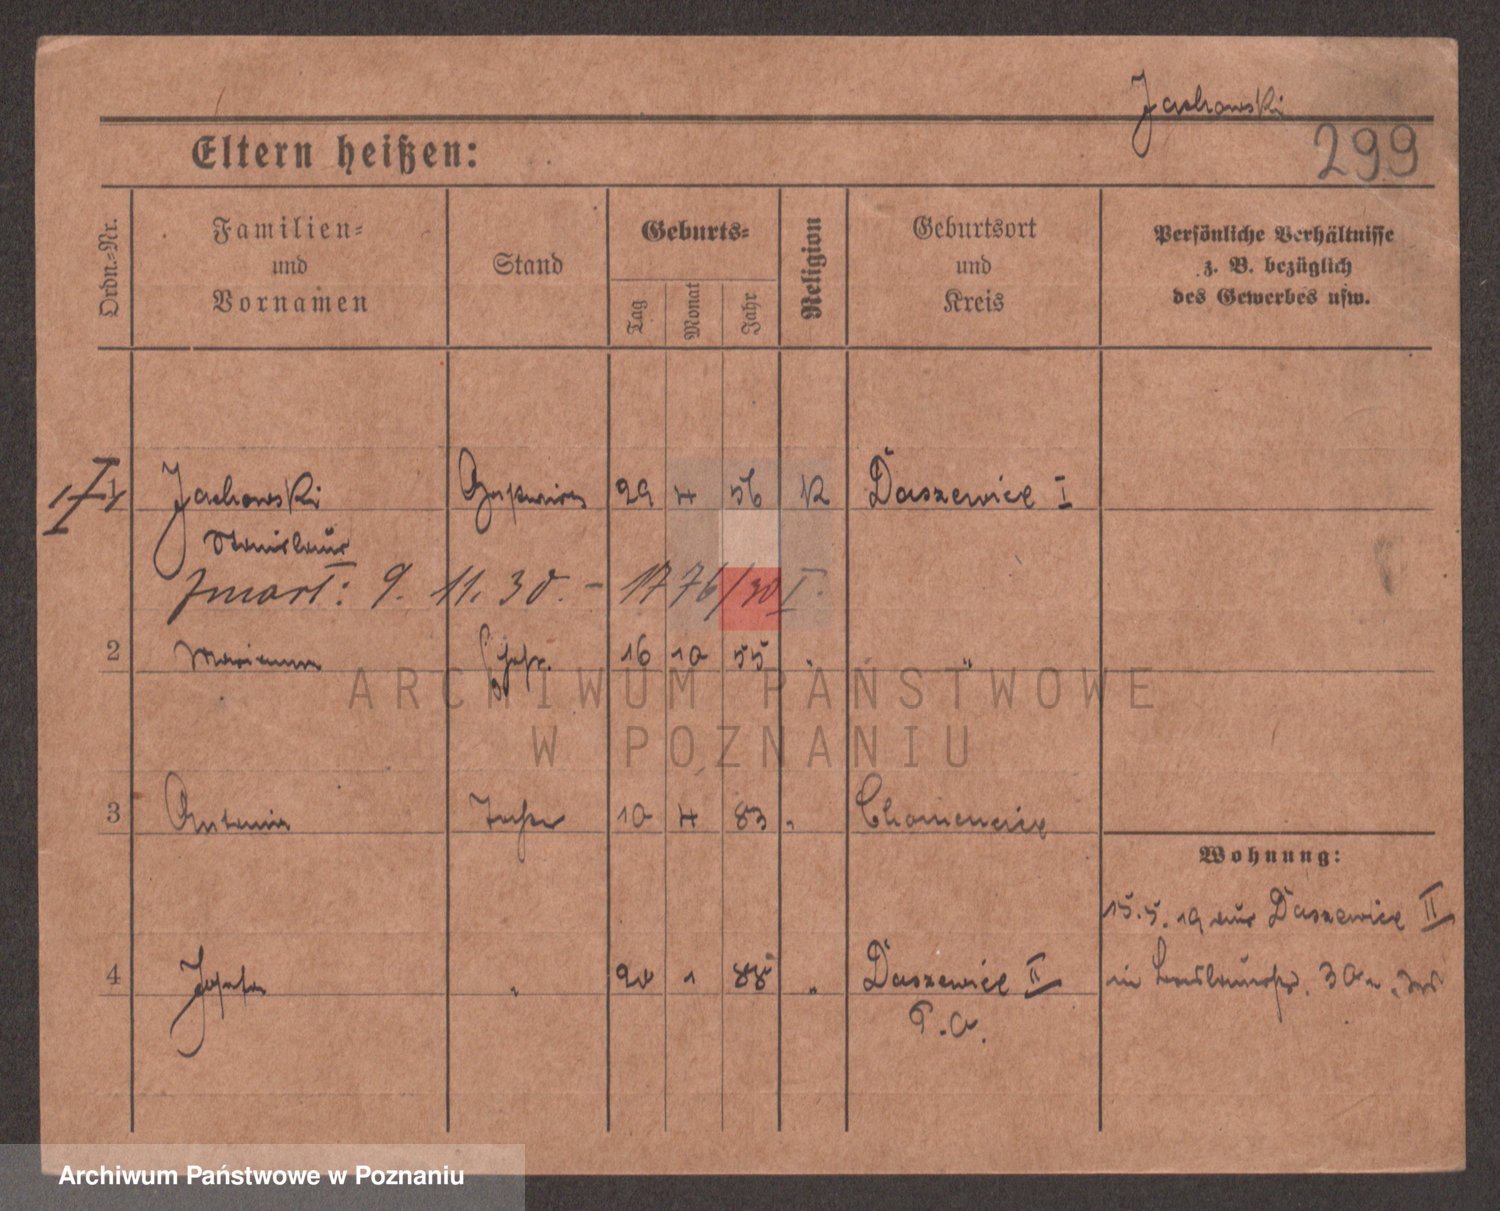 Jachowski
299
Eltern heißen:
Ordn.-Nr.
Familien-
und
Vornamen
Stand
Geburts-
Tag
Monat
Jahr
Religion
Geburtsort
und
Kreis
Persönliche Verhältnisse
z. B. bezüglich
des Gewerbes usw.
I
1 Jachowski 29 4 56 K Daszewice I
Stanislaus
zmarł: 9. 11. 30. – 1776/30 I.
2 Marianna Ehefr. 16 10 55 " "
3 Antonie Tochter 10 4 83 " Chomencice
Wohnung:
15.5.19 aus Daszewice II
4 Josefa " 20 1 88 " Daszewice II
in 30
P.O.
ARCHIWUM PAŃSTWOWE
W POZNANIU
Archiwum Państwowe w Poznaniu